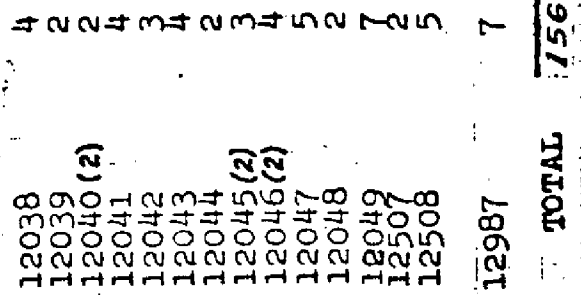 12038 4
12039 2
12040 (2) 2
12041 4
12042 3
12043 4
12044 2
12045 (2) 3
12046 (2) 4
12047 5
12048 2
12049 7
12507 2
12508 5
12987 7
TOTAL 156